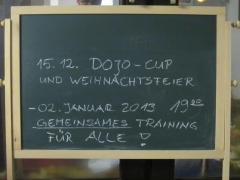 15.12. DOJO-CUP
UND WEIHNACHTSFEIER
-02. JANUAR 2013 19⁰⁰
GEMEINSAMES TRAINING
FÜR ALLE !